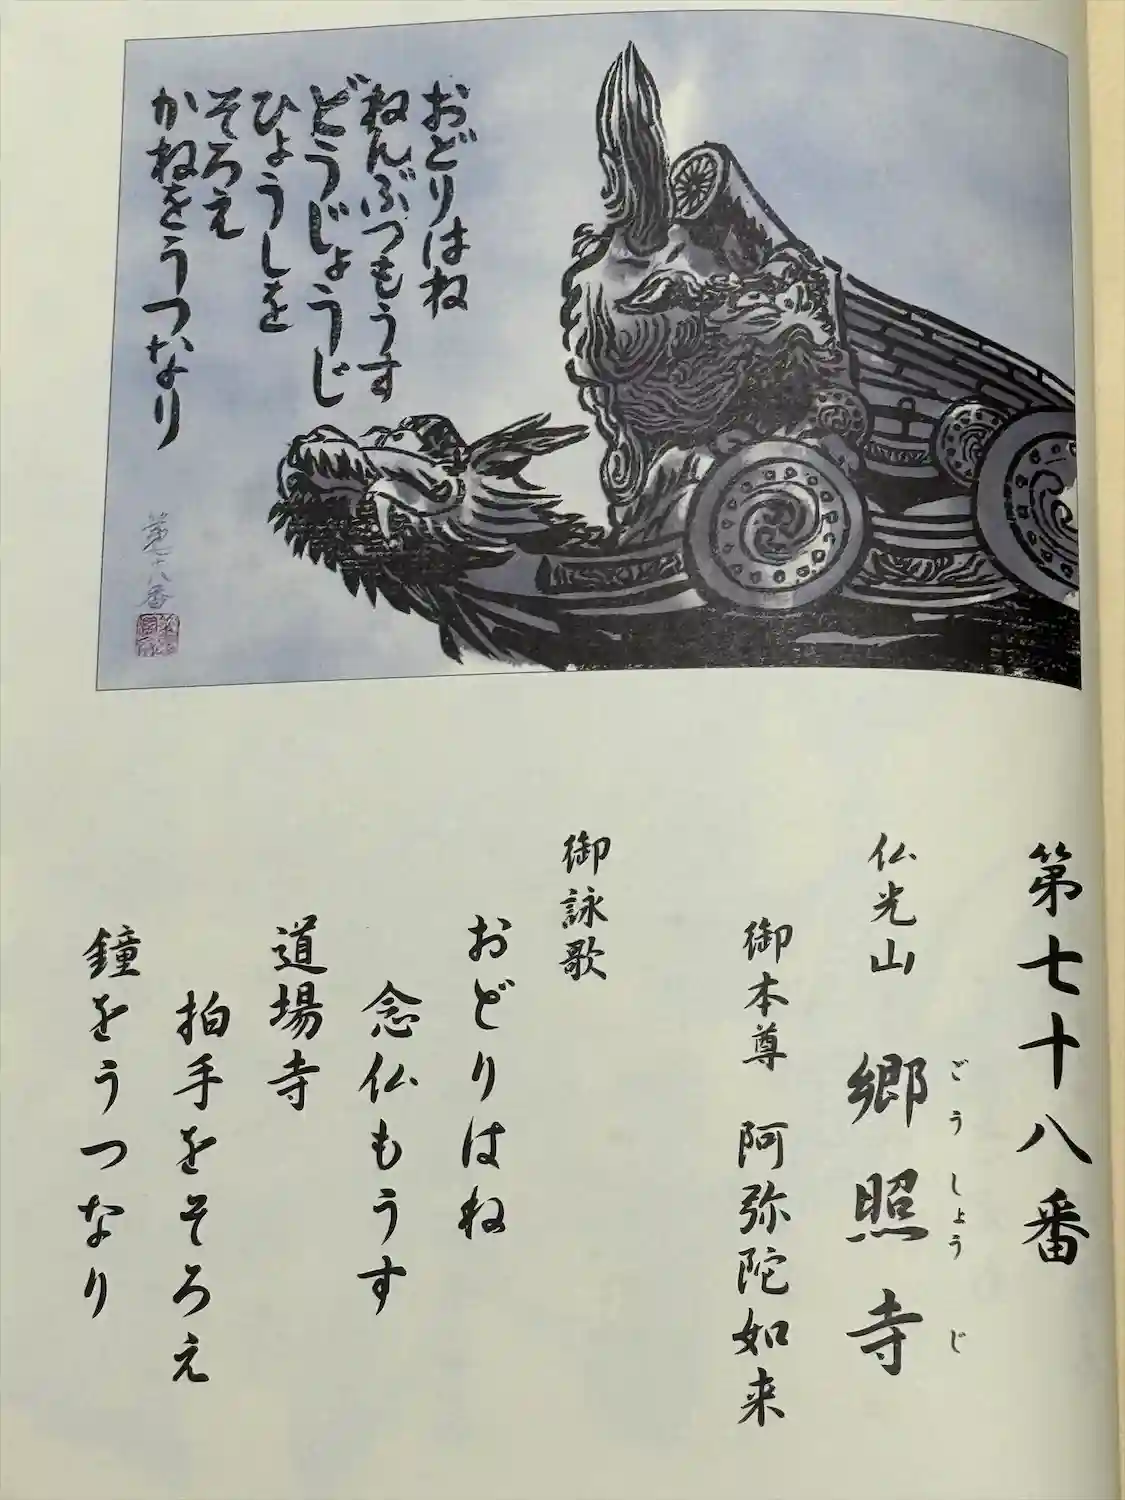 おどりはね
ねんぶつもうす
どうじょうじ
ひょうしを
そろえ
かねをうつなり
第七十八番
第七十八番
仏光山 郷照寺
ごうしょうじ
御本尊 阿弥陀如来
御詠歌
おどりはね
念仏もうす
道場寺
拍手をそろえ
鐘をうつなり